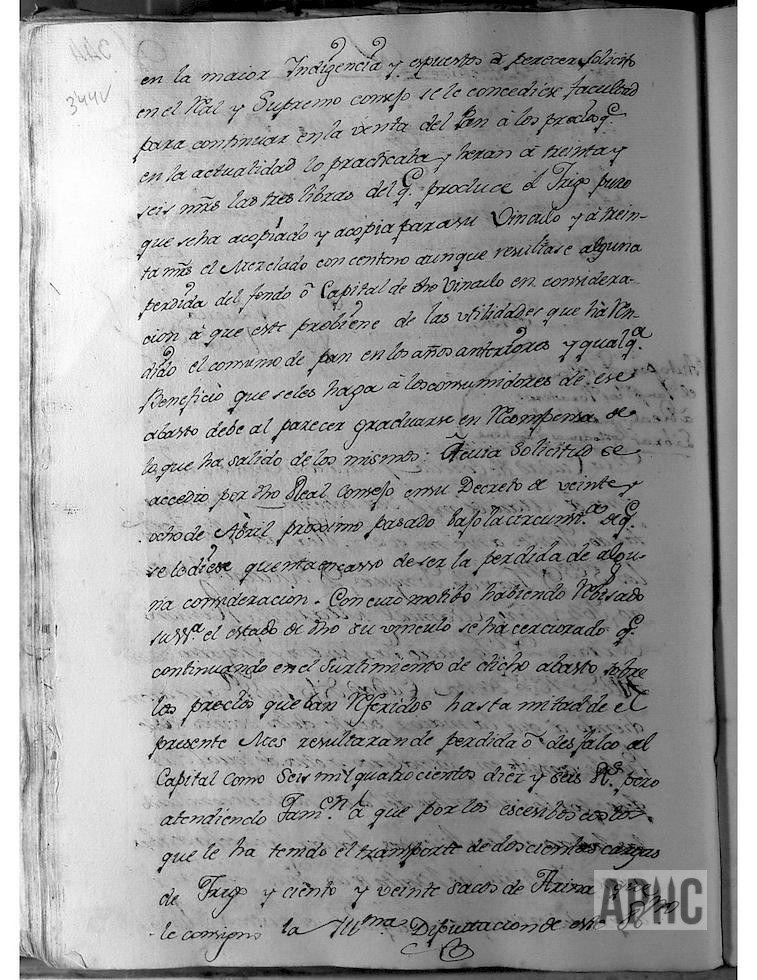 en la maior Indigencia y espuestos â perecer solicito
en el Rl. y Supremo consejo se le concediese facultad
para continuar en la venta del Pan â los precios q.e
en la actualidad lo practicaba y heran â treinta y
seis mrs. las tres libras del q.e produce el Trigo puro
que se ha acopiado y acopia para su Vinculo y â trein-
ta mrs. el Mezclado con centeno aunque resultase alguna
perdida del fondo ô Capital de dho Vinculo en considera-
cion â que este probiene de las utilidades que hâ Ren-
dido el comsumo de pan en los años anteriores y qualq.a
Beneficio que seles haga â los consumidores de ese
abasto debe al parecer graduarse en Recompensa de
lo que ha salido de los mismos: A cuia Solicitud se
accedio por dho Real Consejo en su Decreto de veinte y
ocho de Abril proximo pasado bajo la circunst.a de q.e
se le diese quenta en casso de ser la perdida de algu-
na consideracion. Con cuio motibo habiendo Rebisado
su Sria. el estado de dho su vinculo se hâ cerciorado q.e
continuando en el Surtimiento de dicho abasto sobre
los precios que ban Referidos hasta mitad de el
presente Mes resultaran de perdida ô desfalco al
Capital como Seis mil quatrocientos diez y seis Rs. pero
atendiendo Tam.en â que por los escesibos costos
que le ha tenido el transporte de doscientas cargas
de Trigo y ciento y veinte sacos de Arina que
le consigno la Illma. Diputacion de este Rno
344v
ADHC